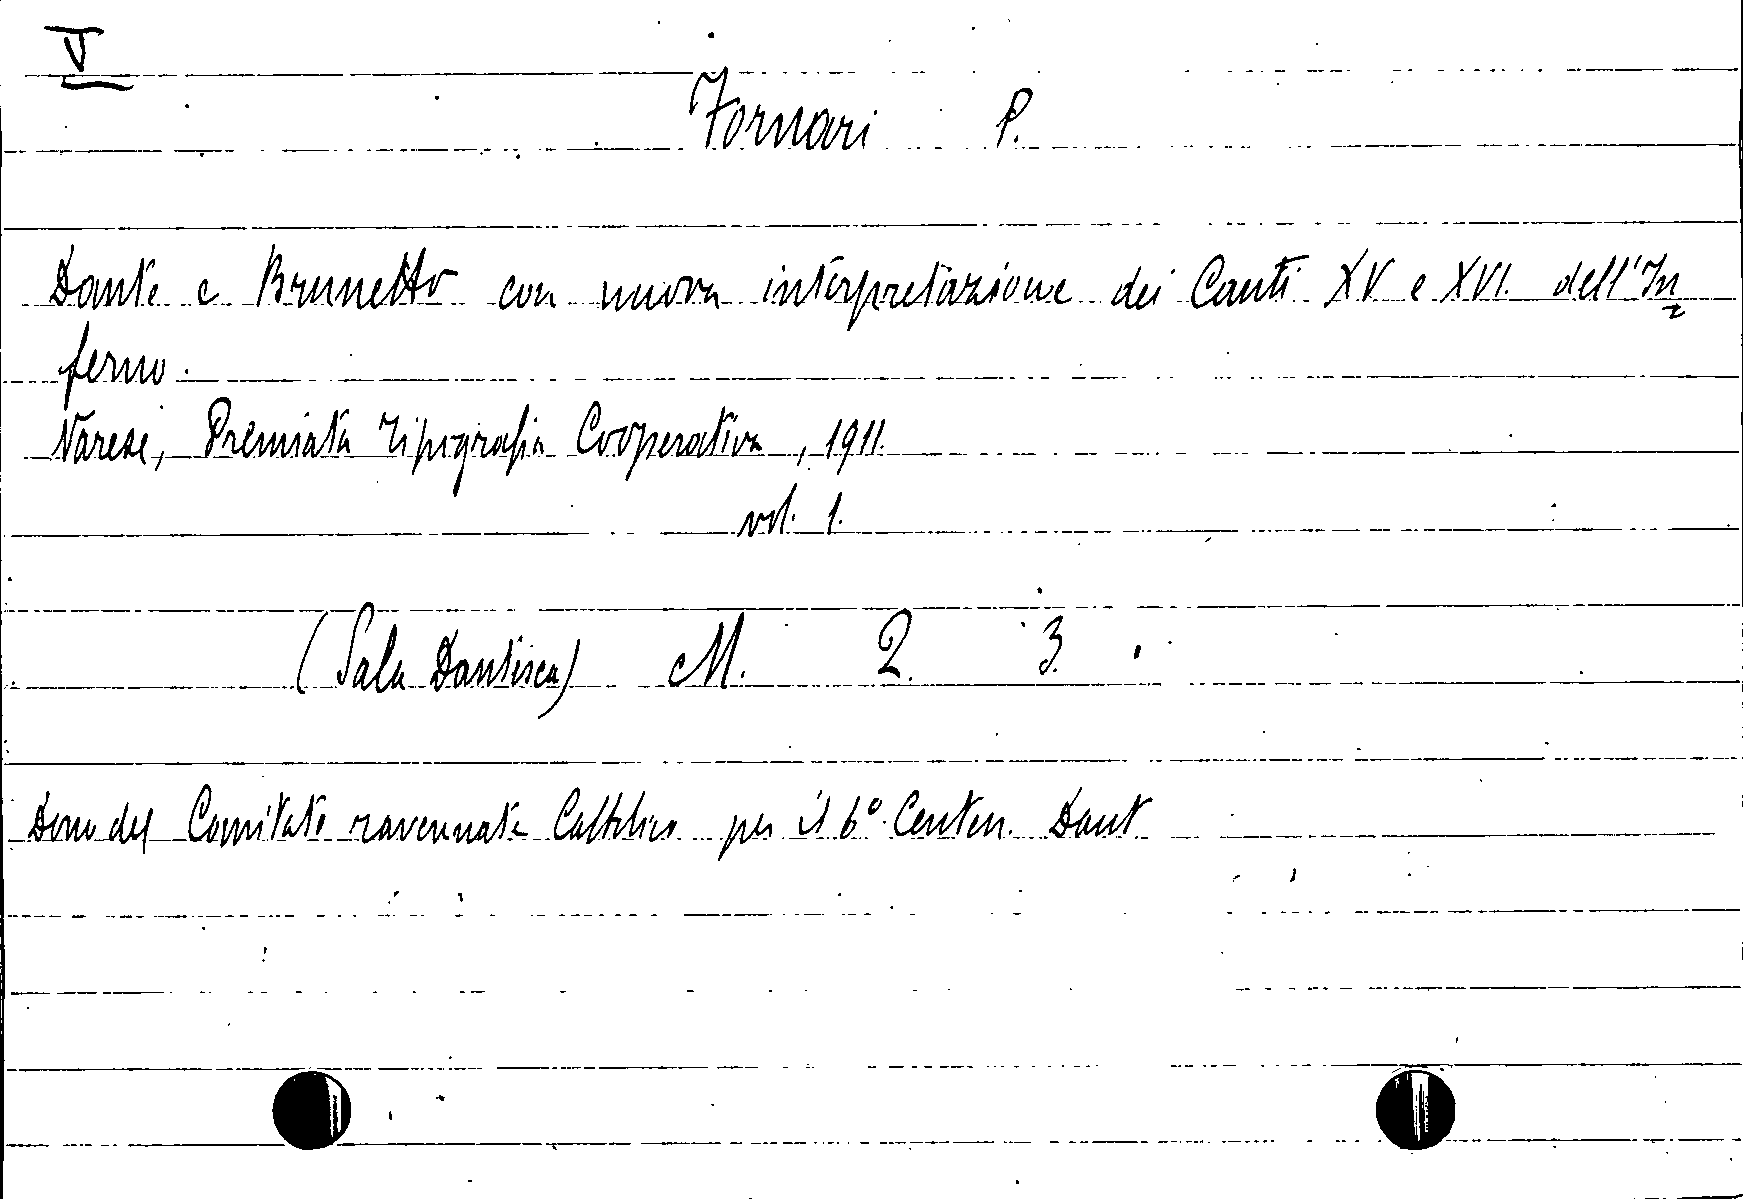 V
Fornari P.
Dante e Brunetto con nuova interpretazione dei Canti XV e XVI. dell'In
ferno.
Varese, Premiata Tipografia Cooperativa, 1911.
vol. 1.
(Sala Dantesca) M. 2. 3.
Dono del Comitato ravennate Cattolico per il 6° Centen. Dant